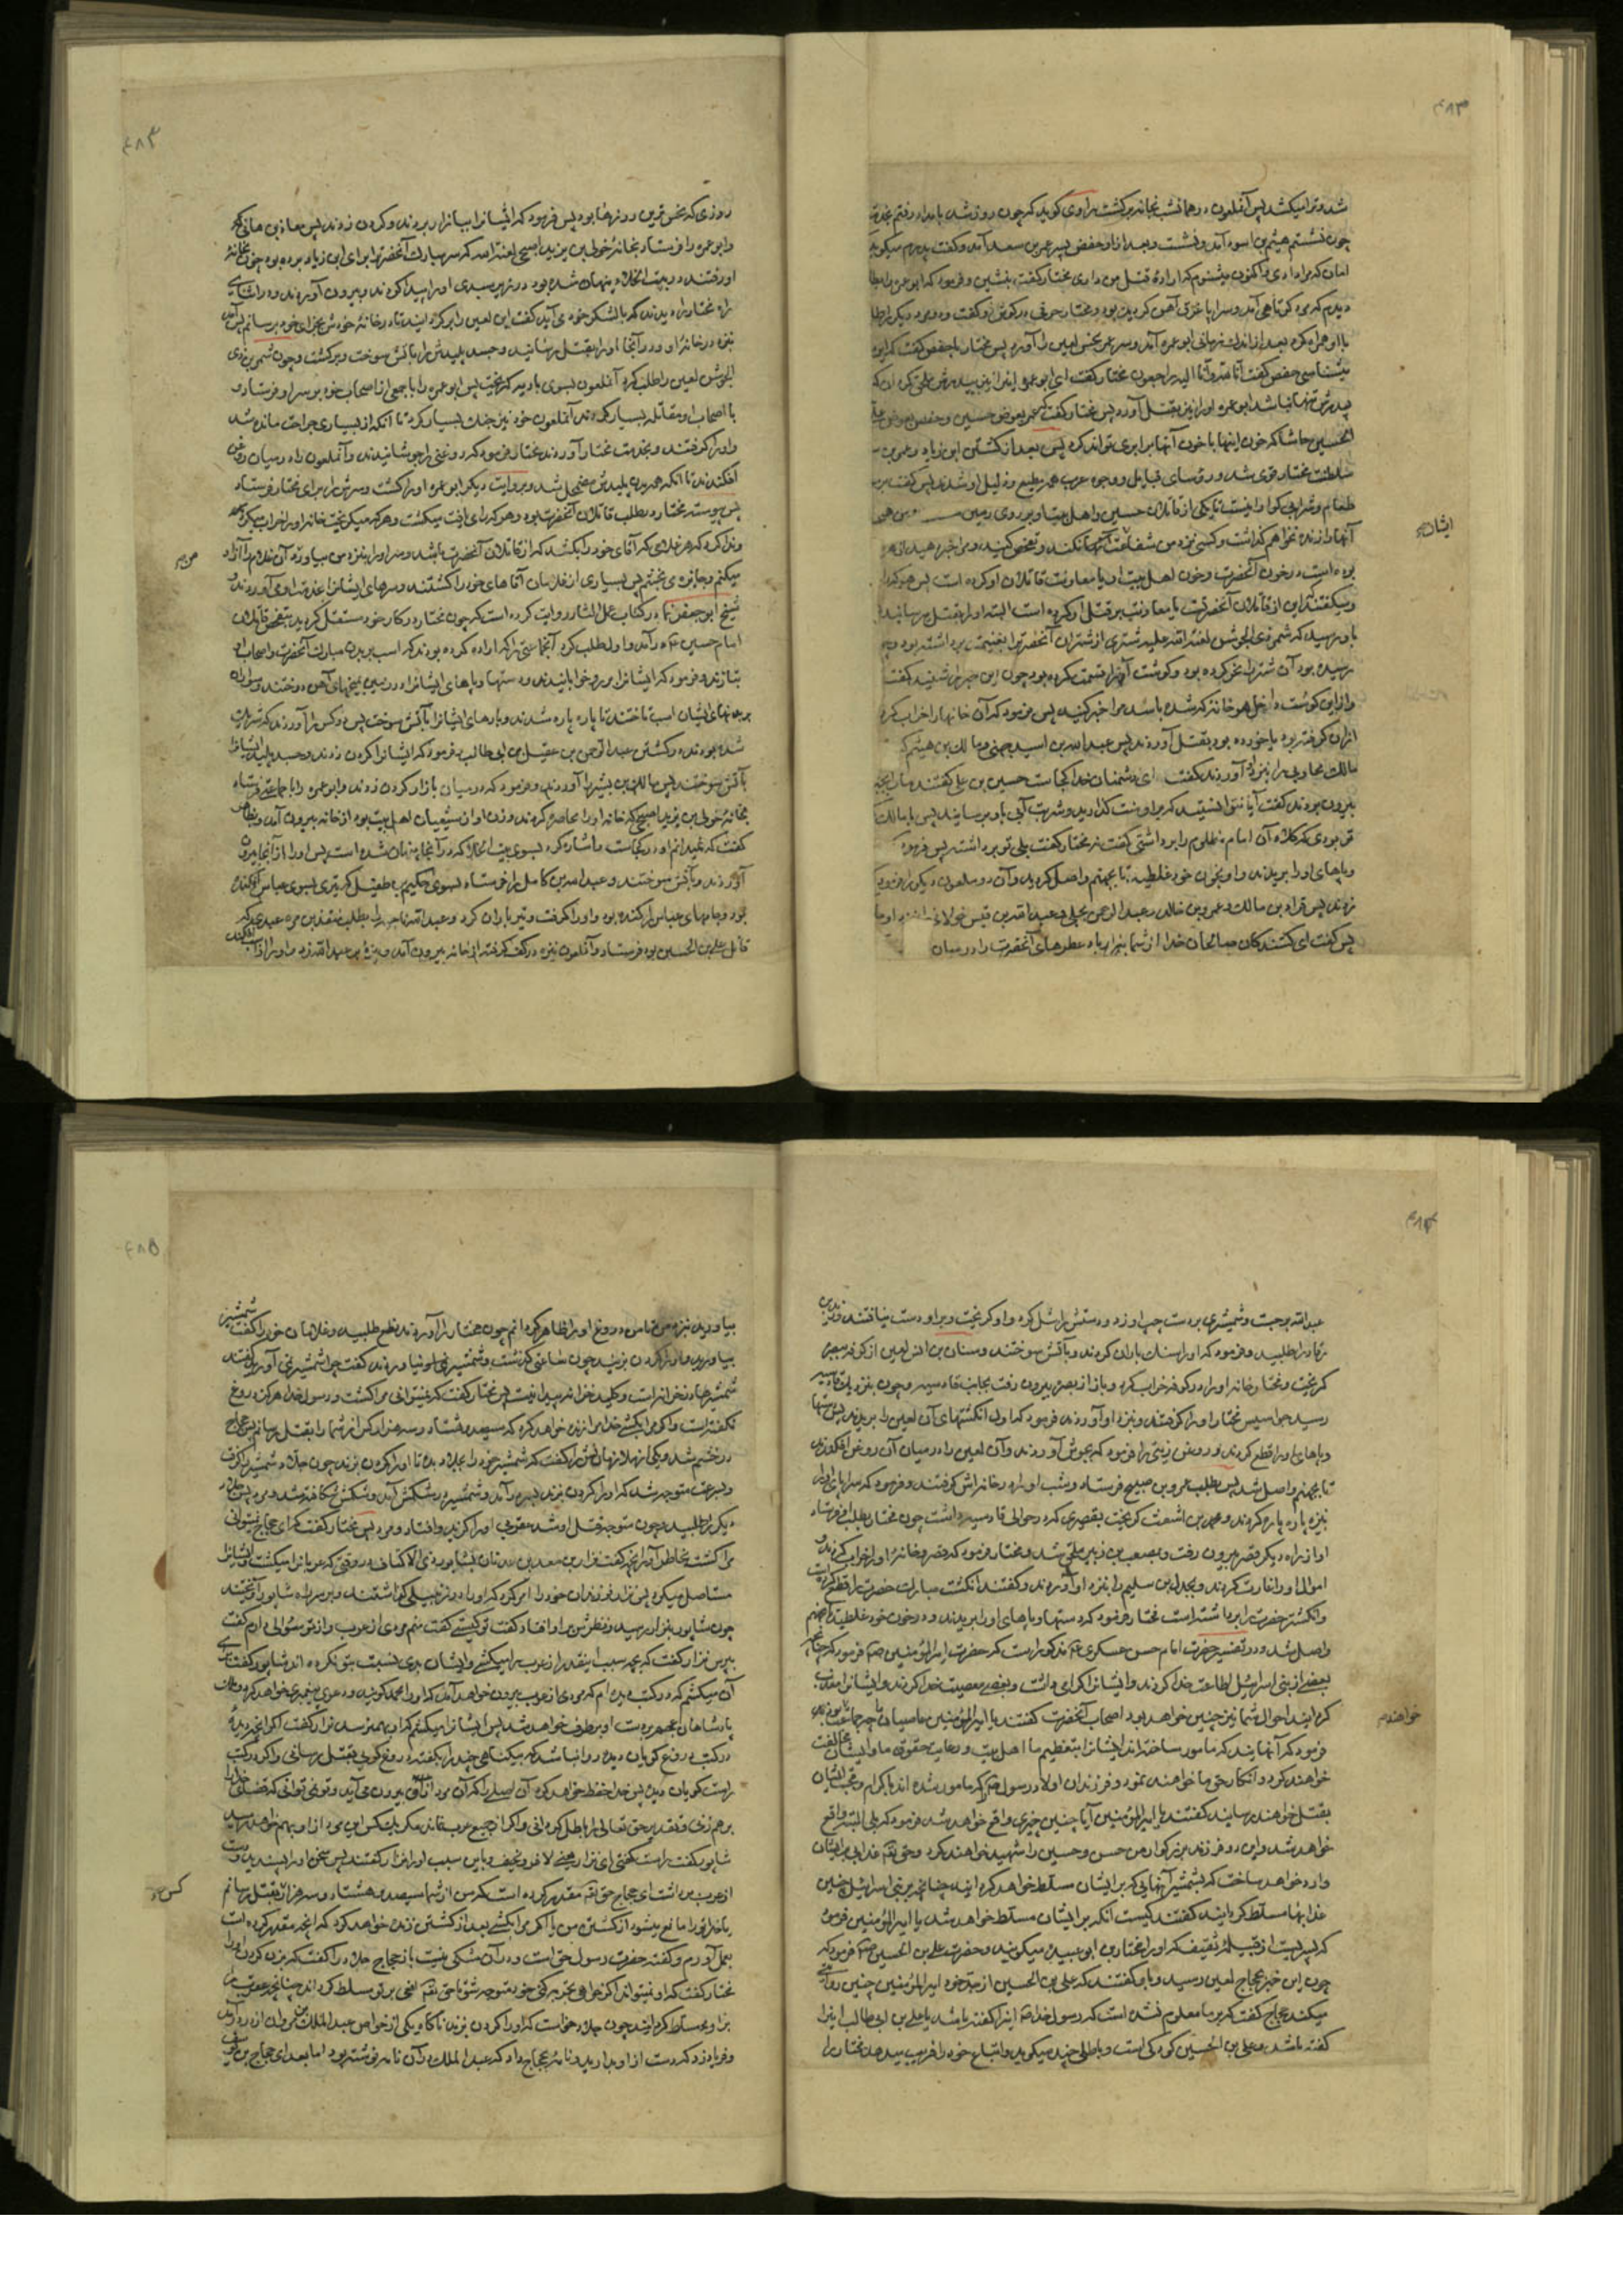 ۴۸۳
شد و ترا میکشد پس آنملعون در همان شب بخانه برگشت راوی گوید که چون روز شد بامداد رفتم بخدمت
چون نشستم هیثم بن اسود آمد و نشست و بعد از او حفص پسر عمر بن سعد آمد و گفت پدرم میگوید
امان که مرا دادی و اکنون میشنوم که اراده قتل من داری مختار گفت بنشین و فرمود که ابو عمره را
دیدم که مرد کوتاهی آمد و سراپا غرق آهن گردیده بود و مختار حرفی در گوش او گفت و دو مرد دیگر را
با او همراه کرد بعد از اندک زمانی ابو عمره آمد و سر عمر نحس لعین را آورد پس مختار با حفص گفت که این
میشناسی حفص گفت انا لله و انا الیه راجعون مختار گفت ای ابو عمره اینرا نیز به پدرش ملحق کردان که
پدرش تنها نباشد ابو عمره او را نیز بقتل آورد پس مختار گفت که عمر بعوض حسین و حفص بعوض علی
بن الحسین حاشا که خون اینها با خون آنها برابری تواند کرد پس بعد از کشتن ابن زیاد و عمر
سلطنت مختار قوی شد و رؤسای قبایل و وجوه عرب همه مطیع و ذلیل او شدند پس گفت بر من
طعام و شراب گوارا نیست تا یکی از قاتلان حسین و اهل بیت او بر روی زمین
آنها را زنده نخواهم گذاشت و کسی نزد من شفاعت آنها نکند و تفحص کنید و مرا خبر دهید از هر
بوده است در خون آنحضرت و خون اهل بیت او یا معاونت قاتلان او کرده است پس هر که را
و میگفتند این از قاتلان آنحضرتست یا معاونت بر قتل او کرده است البته او را بقتل میرسانید
باو رسید که شمر ذی الجوشن لعنة الله علیه شتری از شتران آنحضرت را بغنیمت برداشته بود و چون
رسیده بود آن شتر را نحر کرده بود و گوشت آنرا قسمت کرده بود چون این خبر را شنید گفت
و از این گوشت داخل هر خانه که شده باشد مرا خبر کنید پس فرمود که آن خانها را خراب کردند
از آن گرفته بود یا خورده بود بقتل آوردند پس عبد الله بن اسید جهنی و مالک بن هیثم
مالک محاربی را بنزد او آوردند گفت ای دشمنان خدا کجاست حسین بن علی گفتند ما را بجبر
بیرون بردند گفت آیا نتوانستید که بر او منت گذارید و شربت آبی باو برسانید پس با مالک
تو بودی که کلاه آن امام مظلوم را برداشتی گفت نه مختار گفت بلی تو برداشتی پس فرمود
و پاهای او را بریدند و او بخون خود غلطید تا بجهنم واصل گردید و آن دو ملعون دیگر را فرمود
زدند پس قراد بن مالک و عمرو بن خالد و عبد الرحمن بجلی و عبد الله بن قیس خولانی را
پس گفت ای کشندگان صالحان خدا از شما بیزار باد عطرهای آنحضرت را در میان
ایشان
۴۸۳
روزی که نحس ترین روزها بود پس فرمود که ایشانرا ببازار بردند و گردن زدند پس معاذ بن هانی
و ابو عمره را فرستاد بخانۀ خولی بن یزید اصبحی لعنه الله که سر مبارک آنحضرت را برای ابن زیاد برده بود چون بخانۀ
او رفتند در بیت الخلاء پنهان شده بود در زیر سبدی او را پیدا کردند و بیرون آوردند و در اثنای
راه مختار را دیدند که با لشکر خود می آید گفت این لعین را برگردانید تا در خانۀ خودش بجزای خود برسانم پس آمد
بنزد در خانۀ او و در آنجا او را بقتل رسانید و جسد پلیدش را بآتش سوخت و برگشت و چون شمر بن ذی
الجوشن لعین را طلب کرد آنملعون بسوی بادیه گریخت پس ابو عمره را با جمعی از اصحاب خود بر سر او فرستاد و
با اصحاب او مقاتله بسیار کردند آنملعون خود نیز جنک بسیار کرد تا آنکه از بسیاری جراحت مانده شد
و او را گرفتند و بخدمت مختار آوردند مختار فرمود که روغنی را جوشانیدند و آنملعون را در میان روغن
افکندند تا آنکه همه بدن پلیدش مضمحل شد و بروایت دیگر ابو عمره او را کشت و سرش را برای مختار فرستاد
پس پیوسته مختار در طلب قاتلان آنحضرت بود و هر که را می یافت میکشت و هر که میگریخت خانۀ او را خراب میکرد
و ندا کرد که هر غلامی که آقای خود را بکشد که از قاتلان آنحضرت باشد و سر او را بنزد من بیاورد آن غلام را آزاد
میکنم و جایزه می بخشم پس بسیاری از غلامان آقاهای خود را کشتند و سرهای ایشانرا بخدمت او می آوردند
شیخ ابو جعفر در کتاب عمل الثار روایت کرده است که چون مختار در کار خود مستقل گردید بتفحص قاتلان
امام حسین درآمد و اول طلب کرد آنجماعتی را که اراده کرده بودند که اسب بر بدن مبارک آنحضرت و اصحاب او
بتازند و فرمود که ایشانرا بر رو خوابانیدند و دستها و پاهای ایشانرا در زمین بمیخهای آهن دوختند و سواران
بر بدنهای ایشان اسب تاختند تا پاره پاره شدند و پارهای ایشانرا بآتش سوخت پس دو کس را آوردند که شریک
شده بودند در کشتن عبد الرحمن بن عقیل بن ابی طالب فرمود که ایشانرا گردن زدند و جسد پلید ایشانرا
بآتش سوختند پس مالک بن بشیر را آوردند و فرمود که در میان بازار گردن زدند و ابو عمره را با جماعتی فرستاد
بخانۀ خولی بن یزید اصبحی که خانۀ او را محاصره کردند و زن او از شیعیان اهل بیت بود از خانه بیرون آمد و بظاهر
گفت که نمیدانم او در کجاست و اشاره کرد بسوی بیت الخلا که در آنجا پنهان شده است پس او را از آنجا بیرون
آوردند و بآتش سوختند و عبد الله بن کامل را فرستاد بسوی حکیم بن طفیل که تیری بسوی عباس افکنده
بود و جامهای عباس را کنده بود و او را گرفت و تیر باران کرد و عبد الله ناجیه را بطلب منقذ بن مره عبدی که
قاتل علی بن الحسین بود فرستاد و آنملعون نیزه در کف گرفته از خانه بیرون آمد و نیزه بر عبد الله زد و او را از اسب افکند
۴۸۴
عبد الله برجست و شمشیری بر دست چپ او زد و دستش را شل کرد و او گریخت و بر او دست نیافتند و زید بن
رقاد را طلبید و فرمود که او را سنک باران کردند و بآتش سوختند و سنان بن انس لعین از کوفه ببصره
گریخت و مختار خانۀ او را در کوفه خراب کرد و باز از بصره بیرون رفت بجانب قادسیه و چون بنزدیک قادسیه
رسید جواسیس مختار او را گرفتند و بنزد او آوردند فرمود که اول انگشتهای آن لعین را بریدند پس دستها
و پاهای او را قطع کردند و روغن زیتی را فرمود که بجوش آوردند و آن لعین را در میان آن روغن افکندند
تا بجهنم واصل شد پس بطلب عمرو بن صبیح فرستاد و شب او را در خانه اش گرفتند و فرمود که سراپای او را
بنیزه پاره پاره کردند و محمد بن اشعث گریخت بقصری که در حوالی قادسیه داشت چون مختار بطلب او فرستاد
او از راه دیگر قصر بیرون رفت و بمصعب بن زبیر ملحق شد و مختار فرمود که قصر و خانۀ او را خراب کردند و
اموال او را غارت کردند و بجدل بن سلیم را بنزد او آوردند و گفتند انگشت مبارک حضرت را قطع کرده است
و انگشتر حضرت را برداشته است مختار فرمود که دستها و پاهای او را بریدند و در خون خود غلطید تا بجهنم
واصل شد و در تفسیر حضرت امام حسن عسکری ع مذکور است که حضرت امیر المؤمنین ص فرمود که چنانچه
بعضی از بنی اسرائیل اطاعت خدا کردند و ایشانرا گرامی داشت و بعضی معصیت خدا کردند و ایشانرا معذب
گردانید احوال شما نیز چنین خواهد بود اصحاب آنحضرت گفتند یا امیر المؤمنین عاصیان ما چه جماعت خواهند بود
فرمود که آنهایند که مامور ساخته اند ایشانرا بتعظیم ما اهل بیت و رعایت حقوق ما و ایشان مخالفت
خواهند کرد و انکار حق ما خواهند نمود و فرزندان اولاد رسول ص را که مامور شده اند باکرام و محبت ایشان
بقتل خواهند رسانید گفتند یا امیر المؤمنین آیا چنین چیزی واقع خواهد شد فرمود که بلی البته واقع
خواهد شد و این دو فرزند بزرگوار من حسن و حسین را شهید خواهند کرد و حق تعالی عذابی بر ایشان
وارد خواهد ساخت که بشمشیر آنهایی که بر ایشان مسلط خواهد گردانید چنانچه بر بنی اسرائیل چنین
عذابها مسلط گردانید گفتند کیست آنکه بر ایشان مسلط خواهد شد یا امیر المؤمنین فرمود
که پسریست از قبیلۀ ثقیف که او را مختار بن ابو عبیده میگویند و حضرت علی بن الحسین ص فرمود که
چون این خبر بحجاج لعین رسید و باو گفتند که علی بن الحسین از جد خود امیر المؤمنین چنین روایتی
میکند حجاج گفت که بر ما معلوم نشده است که رسول خدا ص اینرا گفته باشد یا علی بن ابی طالب اینرا
گفته باشد و علی بن الحسین کودکی است و باطلی چند میگوید و اتباع خود را فریب میدهد مختار را
خواهند
۴۸۵
بیاورید بنزد من تا من دروغ او را ظاهر گردانم چون مختار را آوردند نطع طلبید و غلامان خود را گفت شمشیر
بیاورید و او را گردن بزنید چون ساعتی گذشت و شمشیر نیاوردند گفت چرا شمشیر نمی آورید گفتند
شمشیرها در خزانه است و کلید خزانه پیدا نیست پس مختار گفت که نمیتوانی مرا کشت و رسول خدا هرگز دروغ
نگفته است و اگر مرا بکشی خدا مرا زنده خواهد کرد که سیصد و هشتاد و سه هزار کس از شما را بقتل برسانم پس حجاج
در خشم شد و یکی از جلادان خود را گفت که شمشیر خود را بجلاد بده تا او را گردن بزند چون جلاد شمشیر را گرفت
و بسرعت متوجه شد که او را گردن بزند بسر درآمد و شمشیر در شکمش آمد و شکمش شکافته شد و مرد پس جلاد
دیگر را طلبید و چون متوجه قتل او شد عقربی او را گزید و افتاد و مرد پس مختار گفت که ای حجاج نمیتوانی
مرا کشت بخاطر آور آنچه گفت نزار بن معد بن عدنان بشاپور ذی الاکتاف در وقتی که عربانرا میکشت و ایشانرا
مستاصل میکرد پس نزار فرزندان خود را امر کرد که او را در زنبیلی گذاشتند و بر سر راه شاپور آویختند
چون شاپور بنزد او رسید و نظرش بر او افتاد گفت تو کیستی گفت منم مردی از عرب و از تو سؤالی دارم گفت
بپرس نزار گفت که بچه سبب اینقدر از عرب را میکشی و ایشان بدی نسبت بتو نکرده اند شاپور گفت برای
آن میکشم که در کتب دیده ام که مردی از عرب بیرون خواهد آمد که او را محمد گویند و دعوی پیغمبری خواهد کرد و ملک
پادشاهان عجم بر دست او برطرف خواهد شد پس ایشانرا میکشم که او بهم نرسد نزار گفت اگر آنچه دیدۀ
در کتب دروغ گویان دیده روا نباشد که بیگناهی چند را بگفتۀ دروغ گویی بقتل رسانی و اگر در کتب
راست گویان دیده پس خدا حفظ خواهد کرد آن اصلی را که آن مرد از او بیرون می آید و تو نمیتوانی که قضای خدا را
بر هم زنی و تقدیر حق تعالی را باطل گردانی و اگر از جمیع عرب نماند مگر یک کس این مرد از او بهم خواهد رسید
شاپور گفت راست گفتی ای نزار یعنی لاغر و نحیف و باین سبب او را نزار گفتند پس سخن او را پسندید و دست
از عرب برداشت ای حجاج حق تعالی مقدر کرده است که من از شما سیصد و هشتاد و سه هزار بقتل رسانم
یا خدا ترا مانع میشود از کشتن من یا اگر مرا بکشی بعد از کشتن زنده خواهد کرد که آنچه مقدر کرده است
بعمل آورم و گفتۀ حضرت رسول حق است و در آن شکی نیست باز حجاج جلاد را گفت که بزن گردن او را
مختار گفت که او نمیتواند اگر خواهی تجربه کنی خود متوجه شو تا حق تعالی افعی بر تو مسلط گرداند چنانچه عقرب را
بر او مسلط گردانید چون جلاد خواست که او را گردن بزند ناگاه یکی از خواص عبد الملک بن مروان از در درآمد
و فریاد زد که دست از او بدارید و نامۀ بحجاج داد که عبد الملک در آن نامه نوشته بود اما بعد ای حجاج بن یوسف
کس